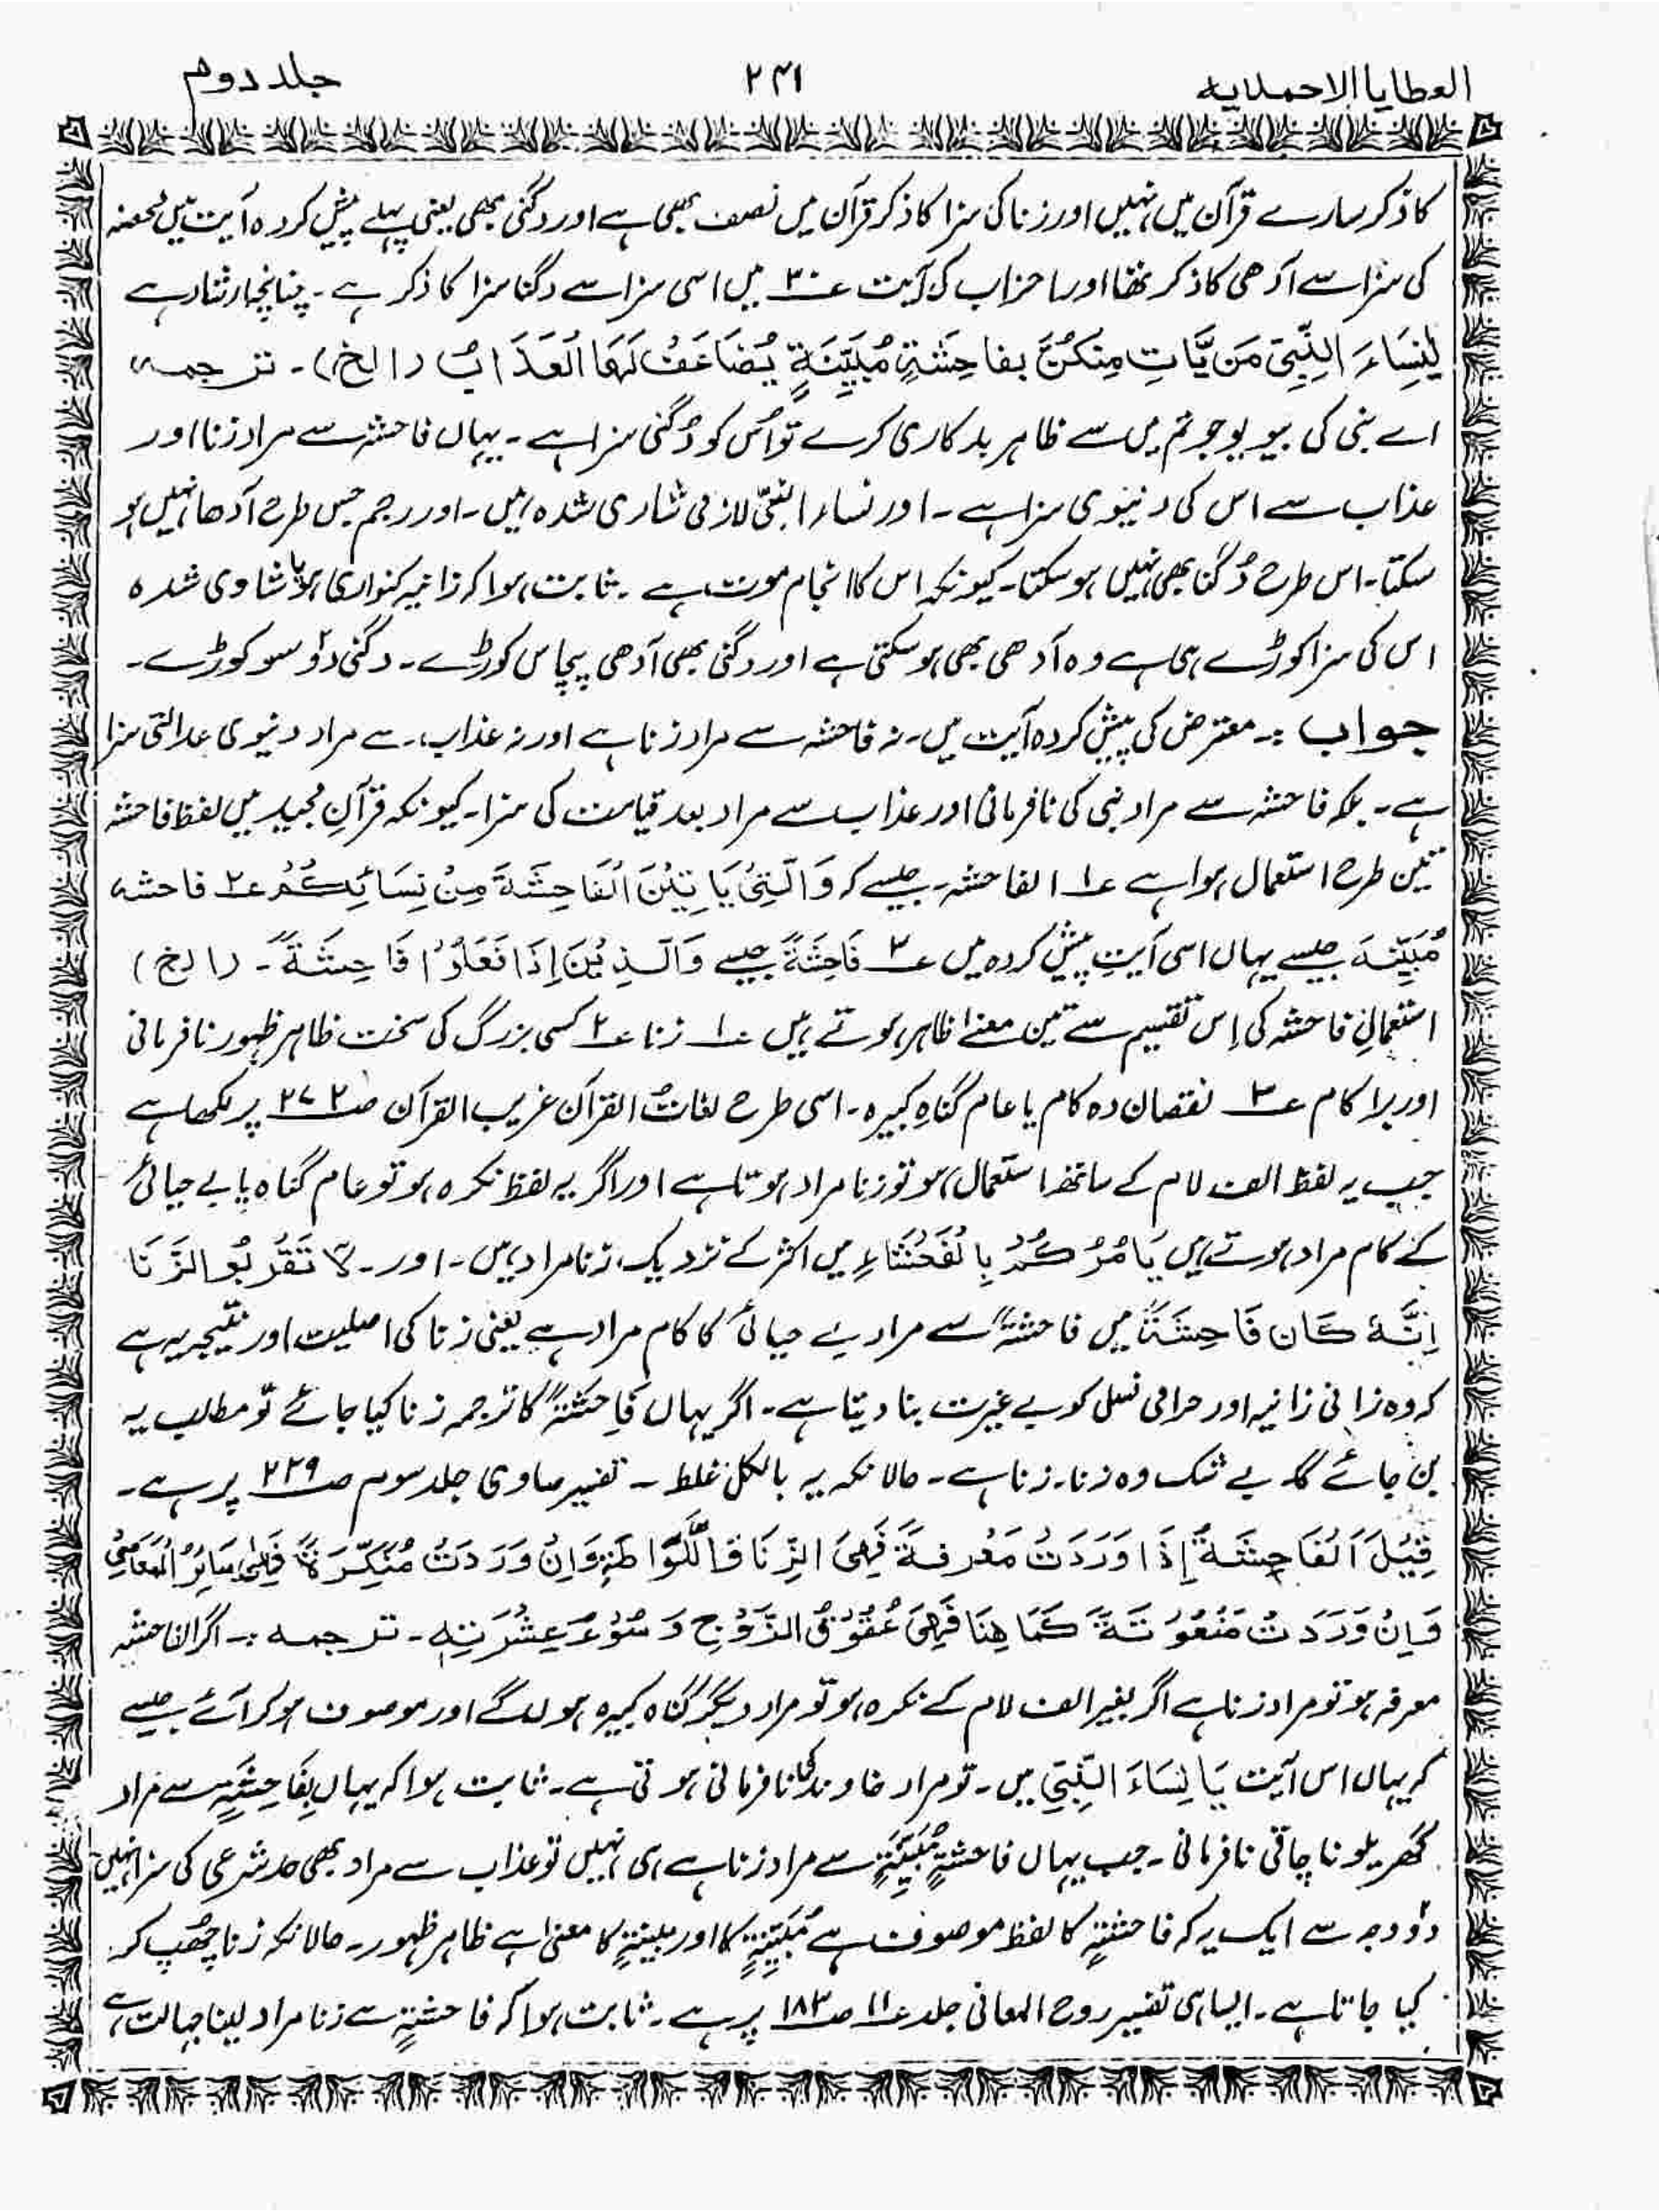 العطایا الاحمدیہ ۲۴۱ جلد دوم
کا ذکر سارے قرآن میں نہیں اور زنا کی سزا کا ذکر قرآن میں نصف بھی ہے اور دگنی بھی یعنی پہلے پیش کردہ آیت میں محصنہ
کی سزا سے آدھی کا ذکر تھا اور احزاب کی آیت ع۳۰ میں اسی سزا سے دگنا سزا کا ذکر ہے۔ چنانچہ ارشاد ہے
یٰنِسَاءَ النَّبِیِّ مَن یَّاتِ مِنکُنَّ بِفَاحِشَةٍ مُّبَیِّنَةٍ یُضَاعَفْ لَهَا الْعَذَابُ (الخ)۔ ترجمہ
اے نبی کی بیویو جو تم میں سے ظاہر بدکاری کرے تو اُس کو دُگنی سزا ہے۔ یہاں فاحشہ سے مراد زنا اور
عذاب سے اس کی دنیوی سزا ہے۔ اور نساء النبیّ لازمی شادی شدہ ہیں۔ اور رجم جس طرح آدھا نہیں ہو
سکتا۔ اس طرح دُگنا بھی نہیں ہو سکتا۔ کیونکہ اس کا انجام موت ہے۔ ثابت ہوا کہ زانیہ کنواری ہو یا شادی شدہ
اس کی سزا کوڑے ہی ہے وہ آدھی بھی ہو سکتی ہے اور دگنی بھی آدھی پچاس کوڑے۔ دگنی دو سو کوڑے۔
جواب :۔ معترض کی پیش کردہ آیت میں۔ نہ فاحشہ سے مراد زنا ہے اور نہ عذاب سے مراد دنیوی عدالتی سزا
ہے۔ بلکہ فاحشہ سے مراد نبی کی نافرمانی اور عذاب سے مراد بعد قیامت کی سزا۔ کیونکہ قرآنِ مجید میں لفظ فاحشہ
تین طرح استعمال ہوا ہے ع۱ الفاحشہ۔ جیسے کہ وَالّٰتِیْ یَاتِیْنَ الْفَاحِشَةَ مِنْ نِسَائِکُمْ ع۲ فاحشہ
مُبَیِّنَہ جیسے یہاں اسی آیتِ پیش کردہ میں ع۳ فَاحِشَةً جیسے وَالَّذِیْنَ إِذَا فَعَلُوْا فَاحِشَةً۔ (الخ)
استعمالِ فاحشہ کی اِس تقسیم سے تین معنےٰ ظاہر ہوتے ہیں ع۱ زنا ع۲ کسی بزرگ کی سخت ظاہر ظہور نافرمانی
اور برا کام ع۳ نقصان دہ کام یا عام گناہِ کبیرہ۔ اسی طرح لغاتُ القرآن غریب القرآن صـ۲۷۲ پر لکھا ہے
جب یہ لفظ الف لام کے ساتھ استعمال ہو تو زنا مراد ہوتا ہے اور اگر یہ لفظ نکرہ ہو تو عام گناہ یا بے حیائی
کے کام مراد ہوتے ہیں یَامُرُکُمْ بِالْفَحْشَاءِ میں اکثر کے نزدیک زنا مراد ہیں۔ اور۔ لَا تَقْرَبُو الزِّنَا
اِنَّهٗ کَانَ فَاحِشَةً میں فاحشۃً سے مراد بے حیائی کا کام مراد ہے یعنی زنا کی اصلیت اور نتیجہ یہ ہے
کہ وہ زانی زانیہ اور حرامی نسل کو بے غیرت بنا دیتا ہے۔ اگر یہاں فَاحِشَةً کا ترجمہ زنا کیا جائے تو مطلب یہ
بن جائے گا۔ بے شک وہ زنا۔ زنا ہے۔ حالانکہ یہ بالکل غلط۔ تفسیر صاوی جلد سوم صـ۲۲۹ پر ہے۔
قِیْلَ اَلْفَاحِشَةُ إِذَا وَرَدَتْ مَعْرِفَةً فَهِیَ الزِّنَا وَاللِّوَاطَةُ وَاِنْ وَرَدَتْ مُنَکِّرَةً فَهِیَ سَایِرُ الْمَعَاصِیْ
وَاِنْ وَرَدَتْ مَنْعُوْتَةً کَمَا هِنَا فَهِیَ عُقُوْقُ الزَّوْجِ وَسُوْءُ عِشْرَتِهٖ۔ ترجمہ :۔ اگر الفاحشہ
معرفہ ہو تو مراد زنا ہے اگر بغیر الف لام کے نکرہ ہو تو مراد دیگر گناہ کبیرہ ہوں گے اور موصوف ہو کر آئے جیسے
کہ یہاں اس آیت یَا نِسَاءَ النَّبِیِّ میں۔ تو مراد خاوند کی نافرمانی ہوتی ہے۔ ثابت ہوا کہ یہاں بِفَاحِشَةٍ سے مراد
گھریلو ناچاقی نافرمانی۔ جب یہاں فاحشۃٍ مُّبَیِّنَةٍ سے مراد زنا ہے ہی نہیں تو عذاب سے مراد بھی حد شرعی کی سزا نہیں
دو وجہ سے ایک یہ کہ فاحشۃٍ کا لفظ موصوف ہے مُبَیِّنَةٍ کا اور مبینۃٍ کا معنیٰ ہے ظاہر ظہور۔ حالانکہ زنا چھُپ کر
کیا جاتا ہے۔ ایسا ہی تفسیر روح المعانی جلد ع۱۱ صـ۱۸۳ پر ہے۔ ثابت ہوا کہ فاحشۃٍ سے زنا مراد لینا جہالت ہے